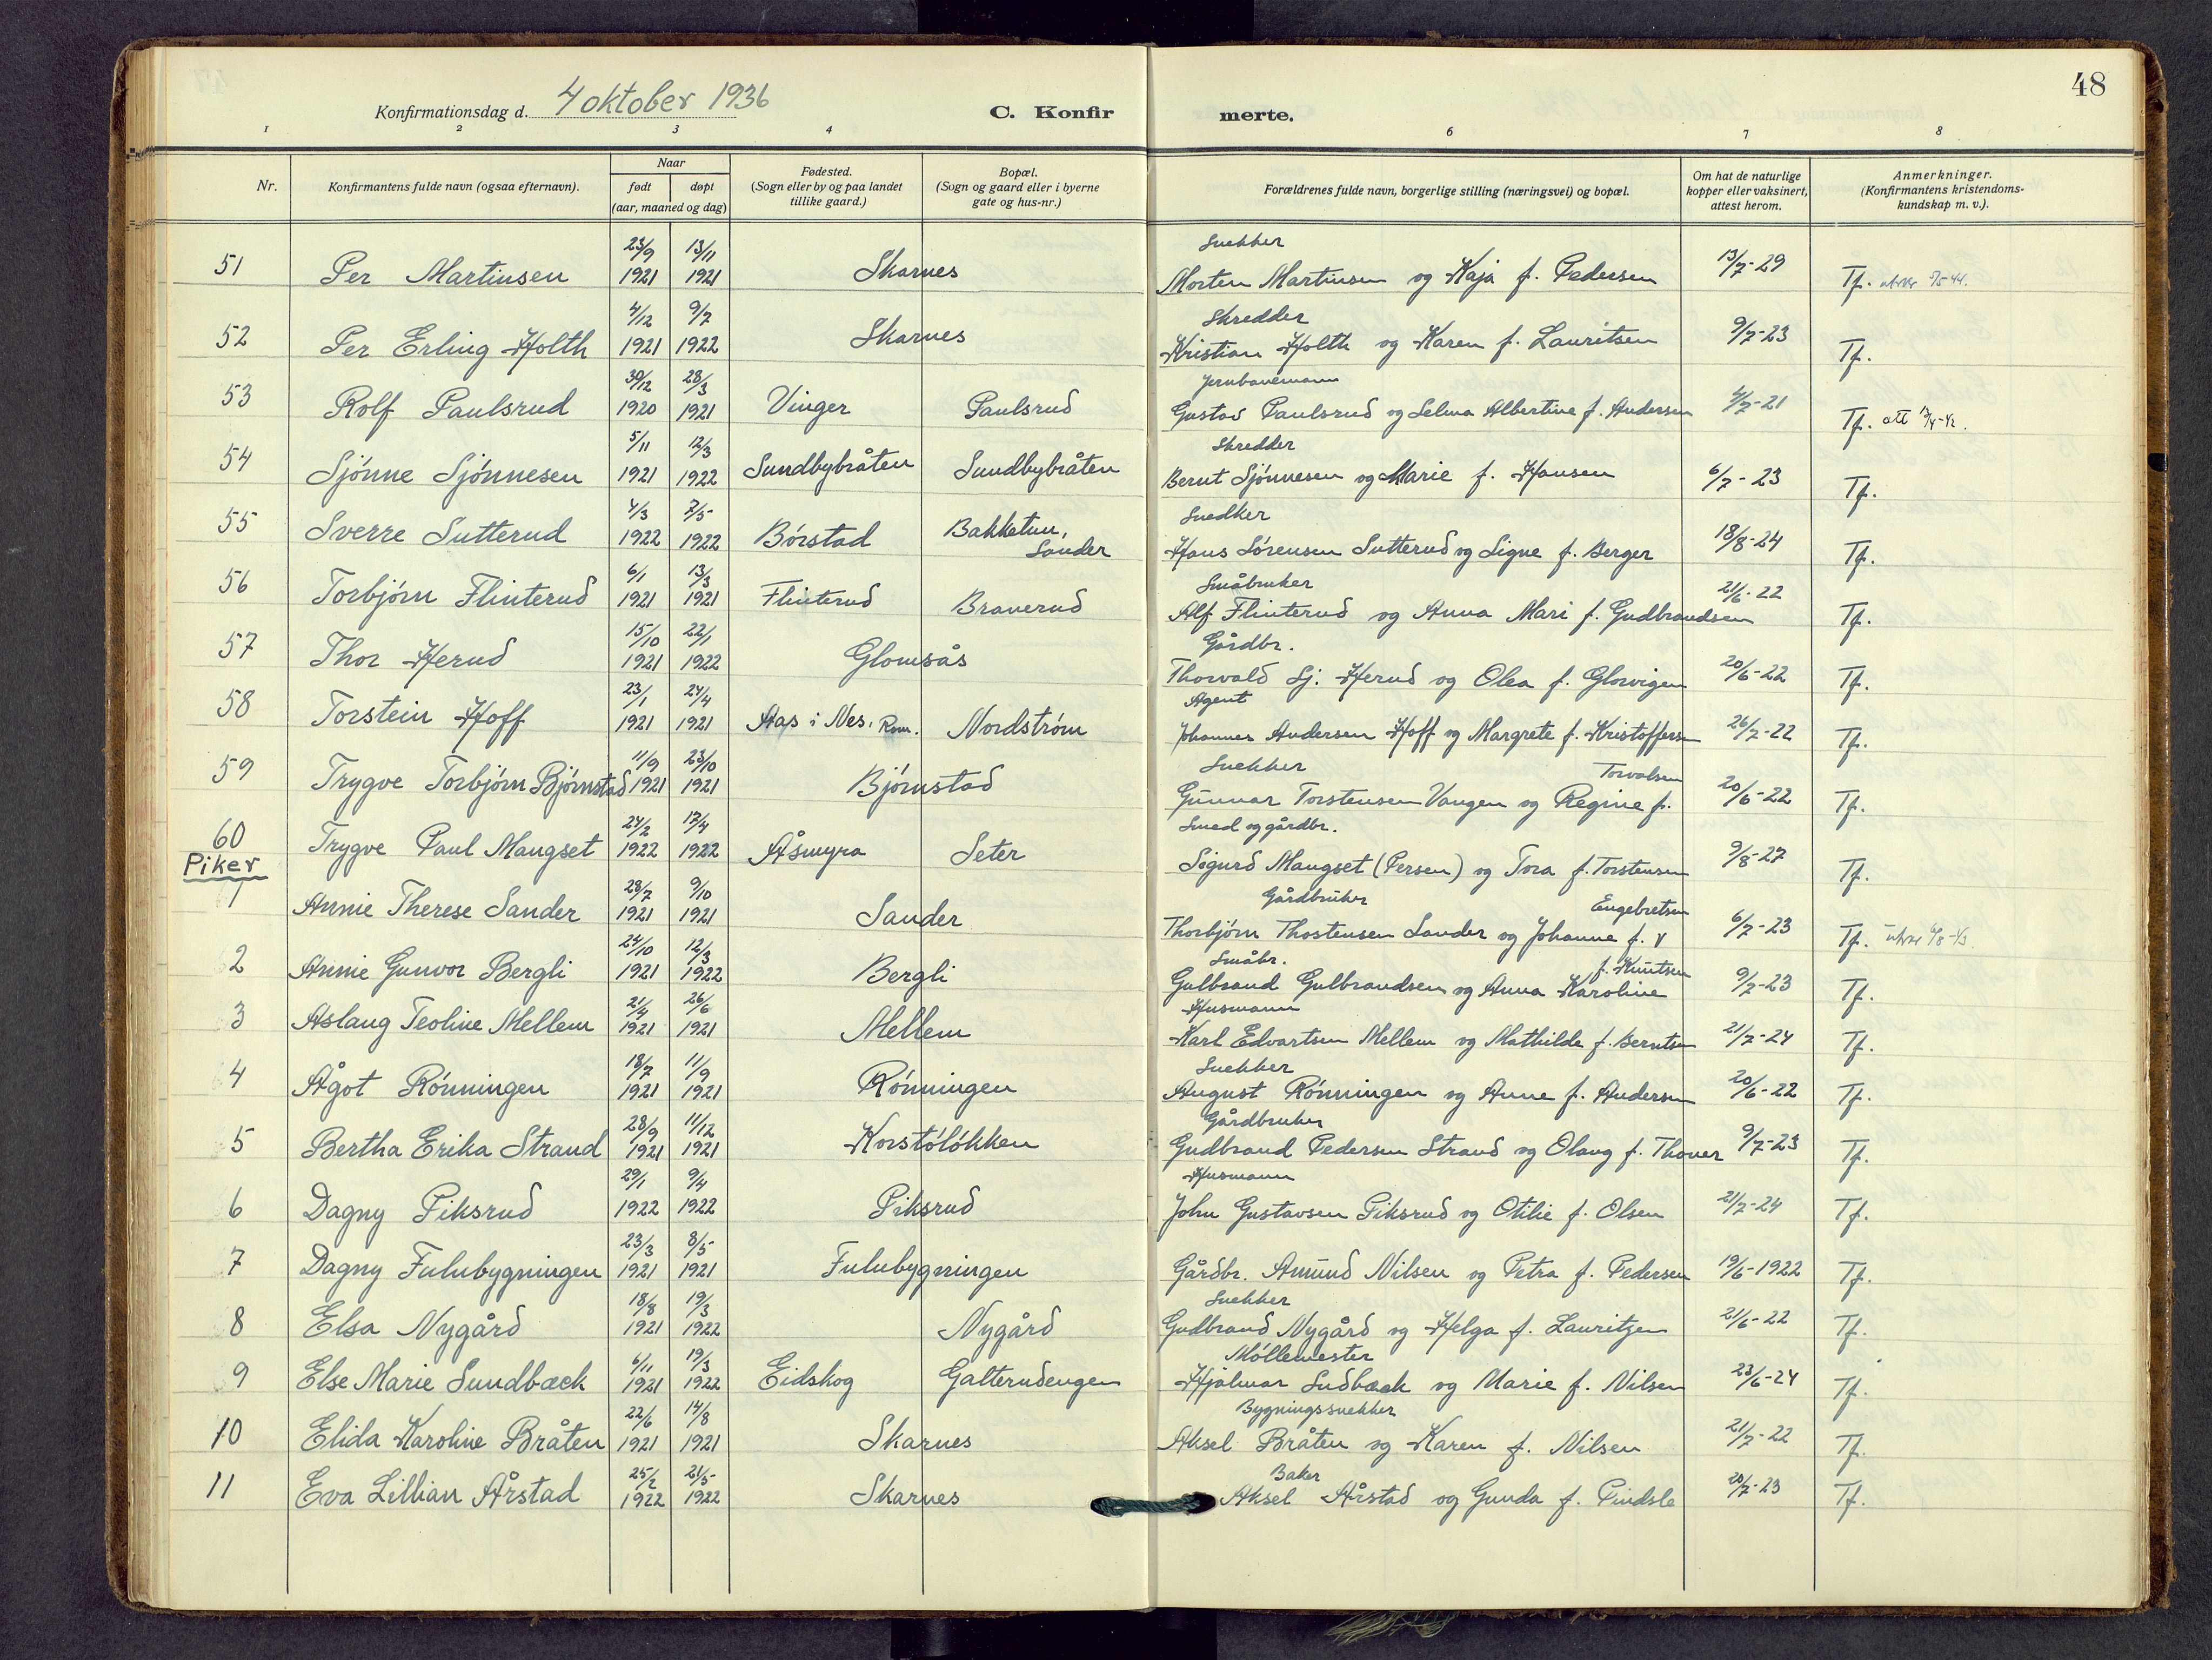 48
Konfirmationsdag d. 4 oktober 1936
C. Konfirmerte.
1 2 3 4 6 7 8
Nr. Konfirmantens fulde navn (ogsaa efternavn). Naar født døpt (aar, maaned og dag) Fødested. (Sogn eller by og paa landet tillike gaard.) Bopæl. (Sogn og gaard eller i byerne gate og hus-nr.) Forældrenes fulde navn, borgerlige stilling (næringsvei) og bopæl. Om hat de naturlige kopper eller vaksinert, attest herom. Anmerkninger. (Konfirmantens kristendoms-kundskap m. v.).
51 Per Martinsen 23/9 1921 13/11 1921 Skarnes Snekker Morten Martinsen og Kaja f. Pedersen 13/7-29 Tf.
52 Per Erling Holth 4/12 1921 9/7 1922 Skarnes Skredder Kristian Holth og Karen f. Lauritsen 9/7-23 Tf.
53 Rolf Paulsrud 30/12 1920 28/3 1921 Vinger Paulsrud Jernbanemann Gustav Paulsrud og Selma Albertine f. Andersen 4/7-21 Tf. att
54 Sjönne Sjönnesen 5/11 1921 12/3 1922 Sundbybråten Sundbybråten Skredder Bernt Sjönnesen og Marie f. Hansen 6/7-23 Tf.
55 Sverre Sutterud 4/3 1922 7/5 1922 Börstad Bakketun, Sander Snedker Hans Sörensen Sutterud og Signe f. Berger 18/8-24 Tf.
56 Torbjörn Flinterud 6/1 1921 13/3 1921 Flinterud Branerud Småbruker Alf Flinterud og Anna Mari f. Gudbrandsen 21/6-22 Tf.
57 Thor Herud 15/10 1921 22/1 1922 Glomsås Gårdbr. Thorvald Sj. Herud og Olea f. Glorvigen 20/6-22 Tf.
58 Torstein Hoff 23/1 1921 24/4 1921 Aas i Nes, Rom. Nordström Agent Johannes Andersen Hoff og Margrete f. Kristoffersen 26/7-22 Tf.
59 Trygve Torbjörn Björnstad 11/9 1921 23/10 1921 Björnstad Snekker Gunnar Torstensen Vangen og Regine f. Torvalsen 20/6-22 Tf.
60 Trygve Paul Mangset 24/2 1922 17/4 1922 Åsmyra Seter Smed og gårdbr. Sigurd Mangset (Persen) og Tora f. Torstensen 9/8-27 Tf.
Piker
1 Annie Therese Sander 28/7 1921 9/10 1921 Sander Gårdbruker Thorbjörn Thostensen Sander og Johanne f. Engebretsen 6/7-23 Tf.
2 Annie Gunvor Bergli 24/10 1921 12/3 1922 Bergli Småbr. Gulbrand Gulbrandsen og Anna Karoline f. Knutsen 9/7-23 Tf.
3 Aslaug Teoline Mellem 21/4 1921 26/6 1921 Mellem Husmann Karl Edvartsen Mellem og Mathilde f. Berntsen 21/7-24 Tf.
4 Ågot Rönningen 18/7 1921 11/9 1921 Rönningen Snekker August Rönningen og Anne f. Andersen 20/6-22 Tf.
5 Bertha Erika Strand 28/9 1921 11/12 1921 Korstölökken Gårdbruker Gudbrand Pedersen Strand og Olaug f. Thoner 9/7-23 Tf.
6 Dagny Piksrud 29/1 1922 9/4 1922 Piksrud Husmann John Gustavsen Piksrud og Otilie f. Olsen 21/7-24 Tf.
7 Dagny Fulubygningen 23/3 1921 8/5 1921 Fulubygningen Gårdbr. Amund Nilsen og Petra f. Pedersen 19/6-1922 Tf.
8 Elsa Nygård 18/8 1921 19/3 1922 Nygård Snekker Gudbrand Nygård og Helga f. Lauritzen 21/6-22 Tf.
9 Else Marie Sundbæck 6/11 1921 19/3 1922 Eidskog Galterudengen Möllemester Hjalmar Sudbæck og Marie f. Nilsen 23/6-24 Tf.
10 Elida Karoline Bråten 22/6 1921 14/8 1921 Skarnes Bygningssnekker Aksel Bråten og Karen f. Nilsen 21/7-22 Tf.
11 Eva Lillian Årstad 25/2 1922 21/5 1922 Skarnes Baker Aksel Årstad og Gunda f. Pindsle 20/7-23 Tf.